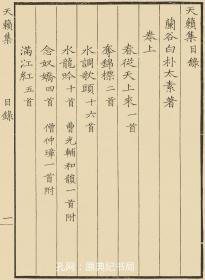 天籟集目錄
蘭谷白朴太素著
卷上
春從天上來一首
奪錦標二首
水調歌頭十六首
水龍吟十首 曹光輔和韻一首附
念奴嬌四首 僧仲璋一首附
滿江紅五首
天籟集 目錄 一
孔网: